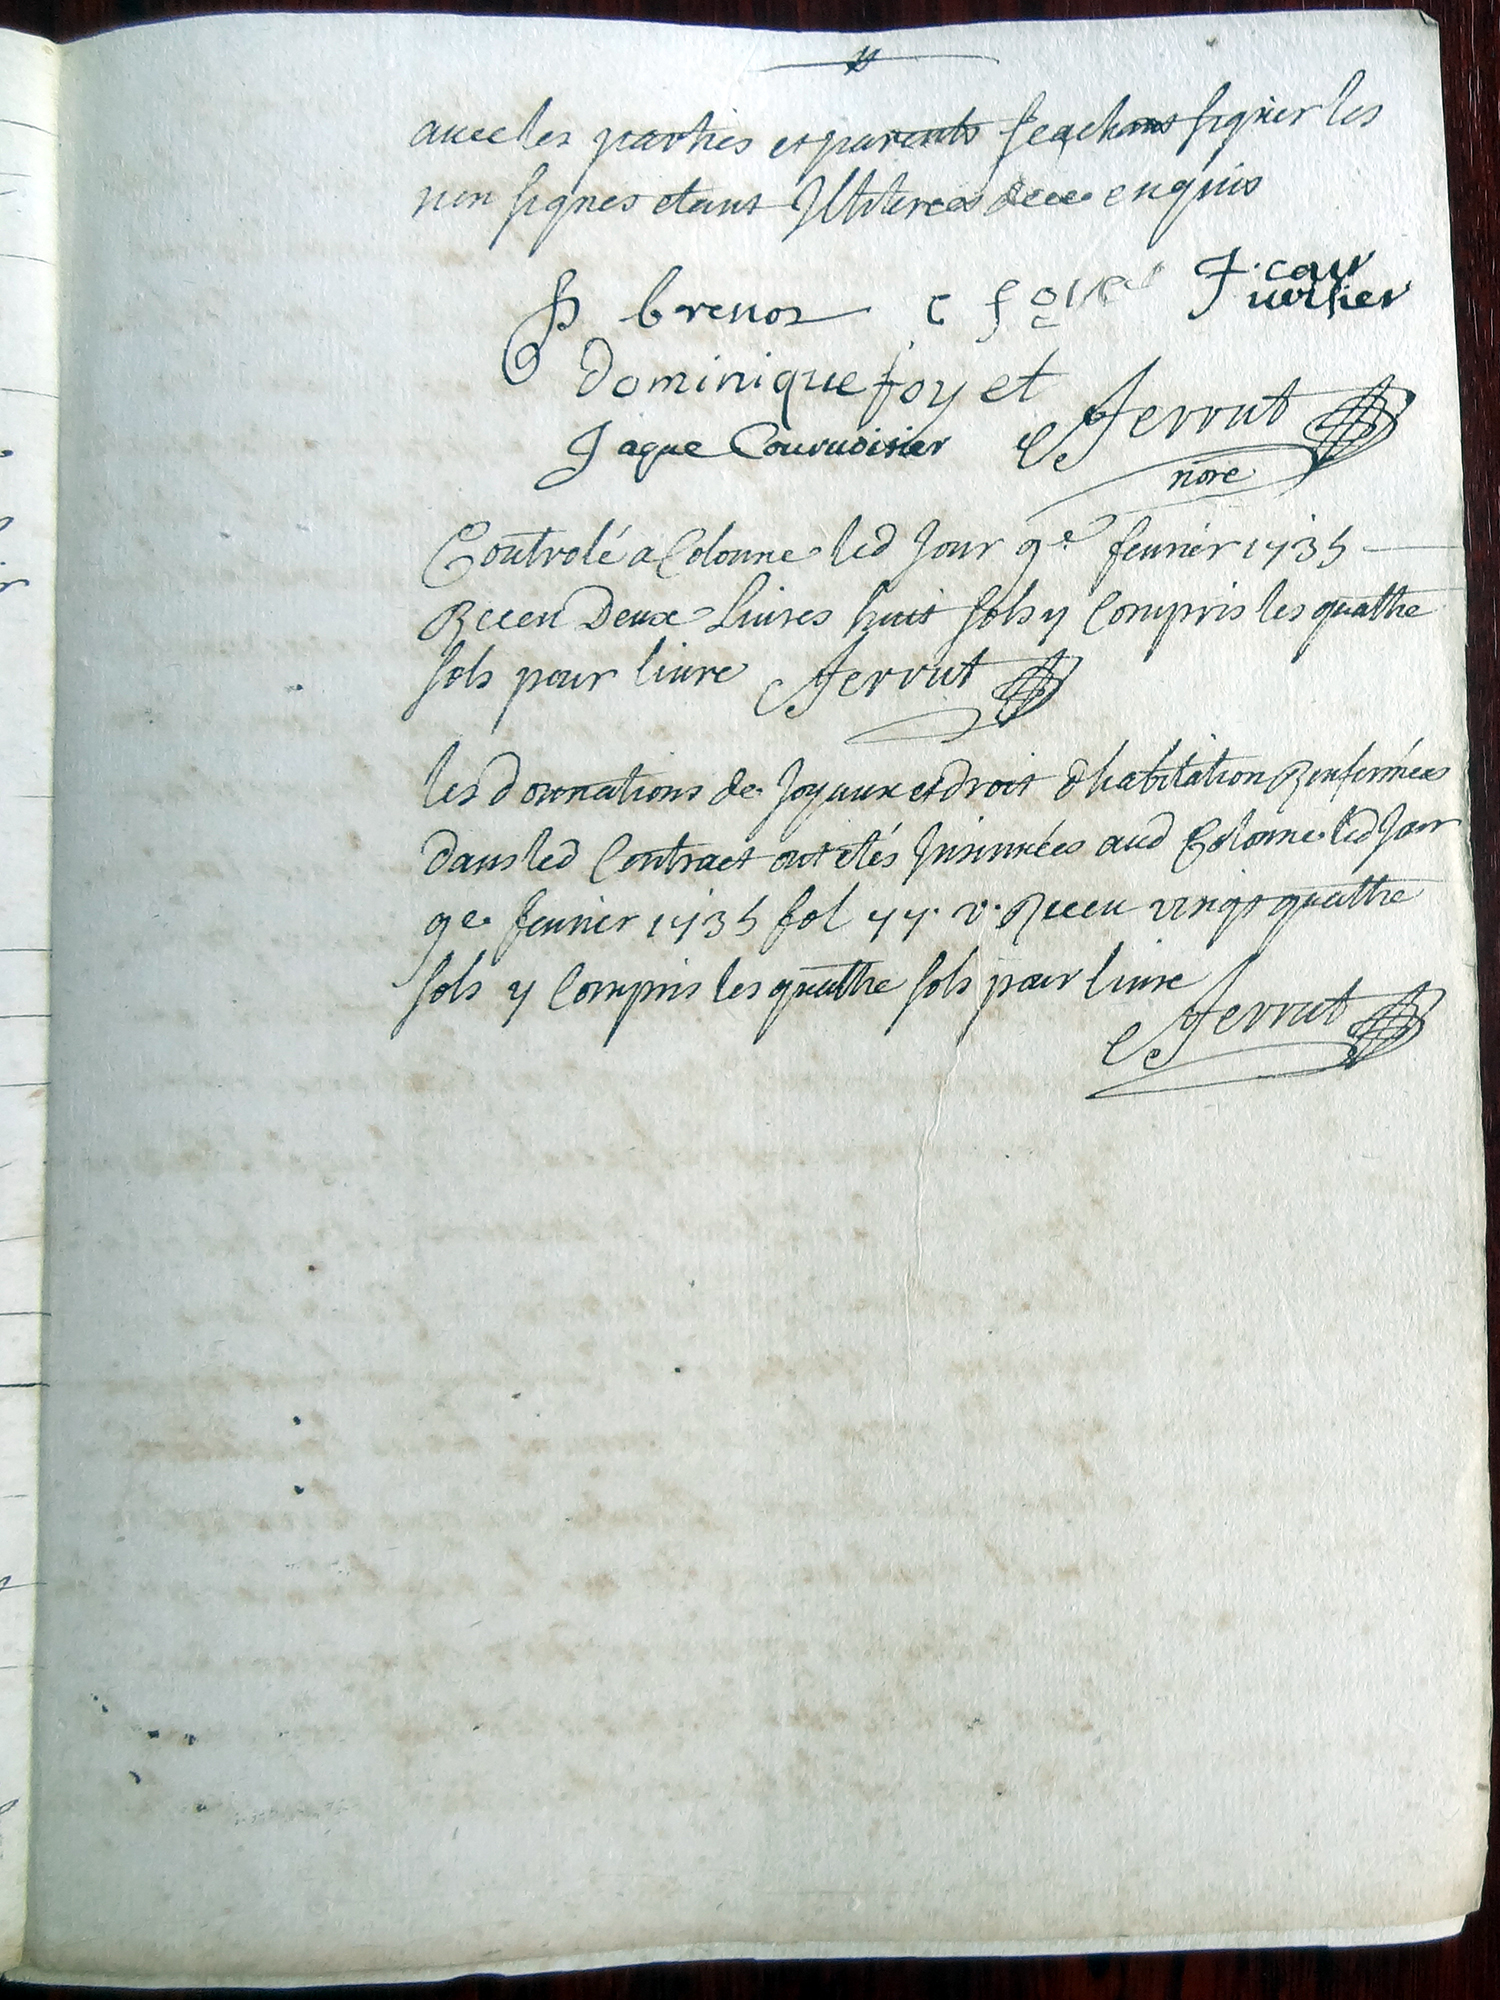 auec les parties et parents scachans signer les
non signes etant Illiterees de ce enquis
brenot c
J. cour
uoisier
Dominique foyet
Jaque Couruoisier Jerrut
nore
Controlé a Colonne led Jour 9e feurier 1735
Receu Deux Liures huit sols y Compris les quattre
sols pour liure Jerrut
les donnations de Joyaux et droit d'habitation Renfermées
dans led Contract ont etés Insinuées aud Colonne led Jour
9e feurier 1735 fol 44. v. Receu vingt quattre
sols y Compris les quattre sols pour liure
Jerrut